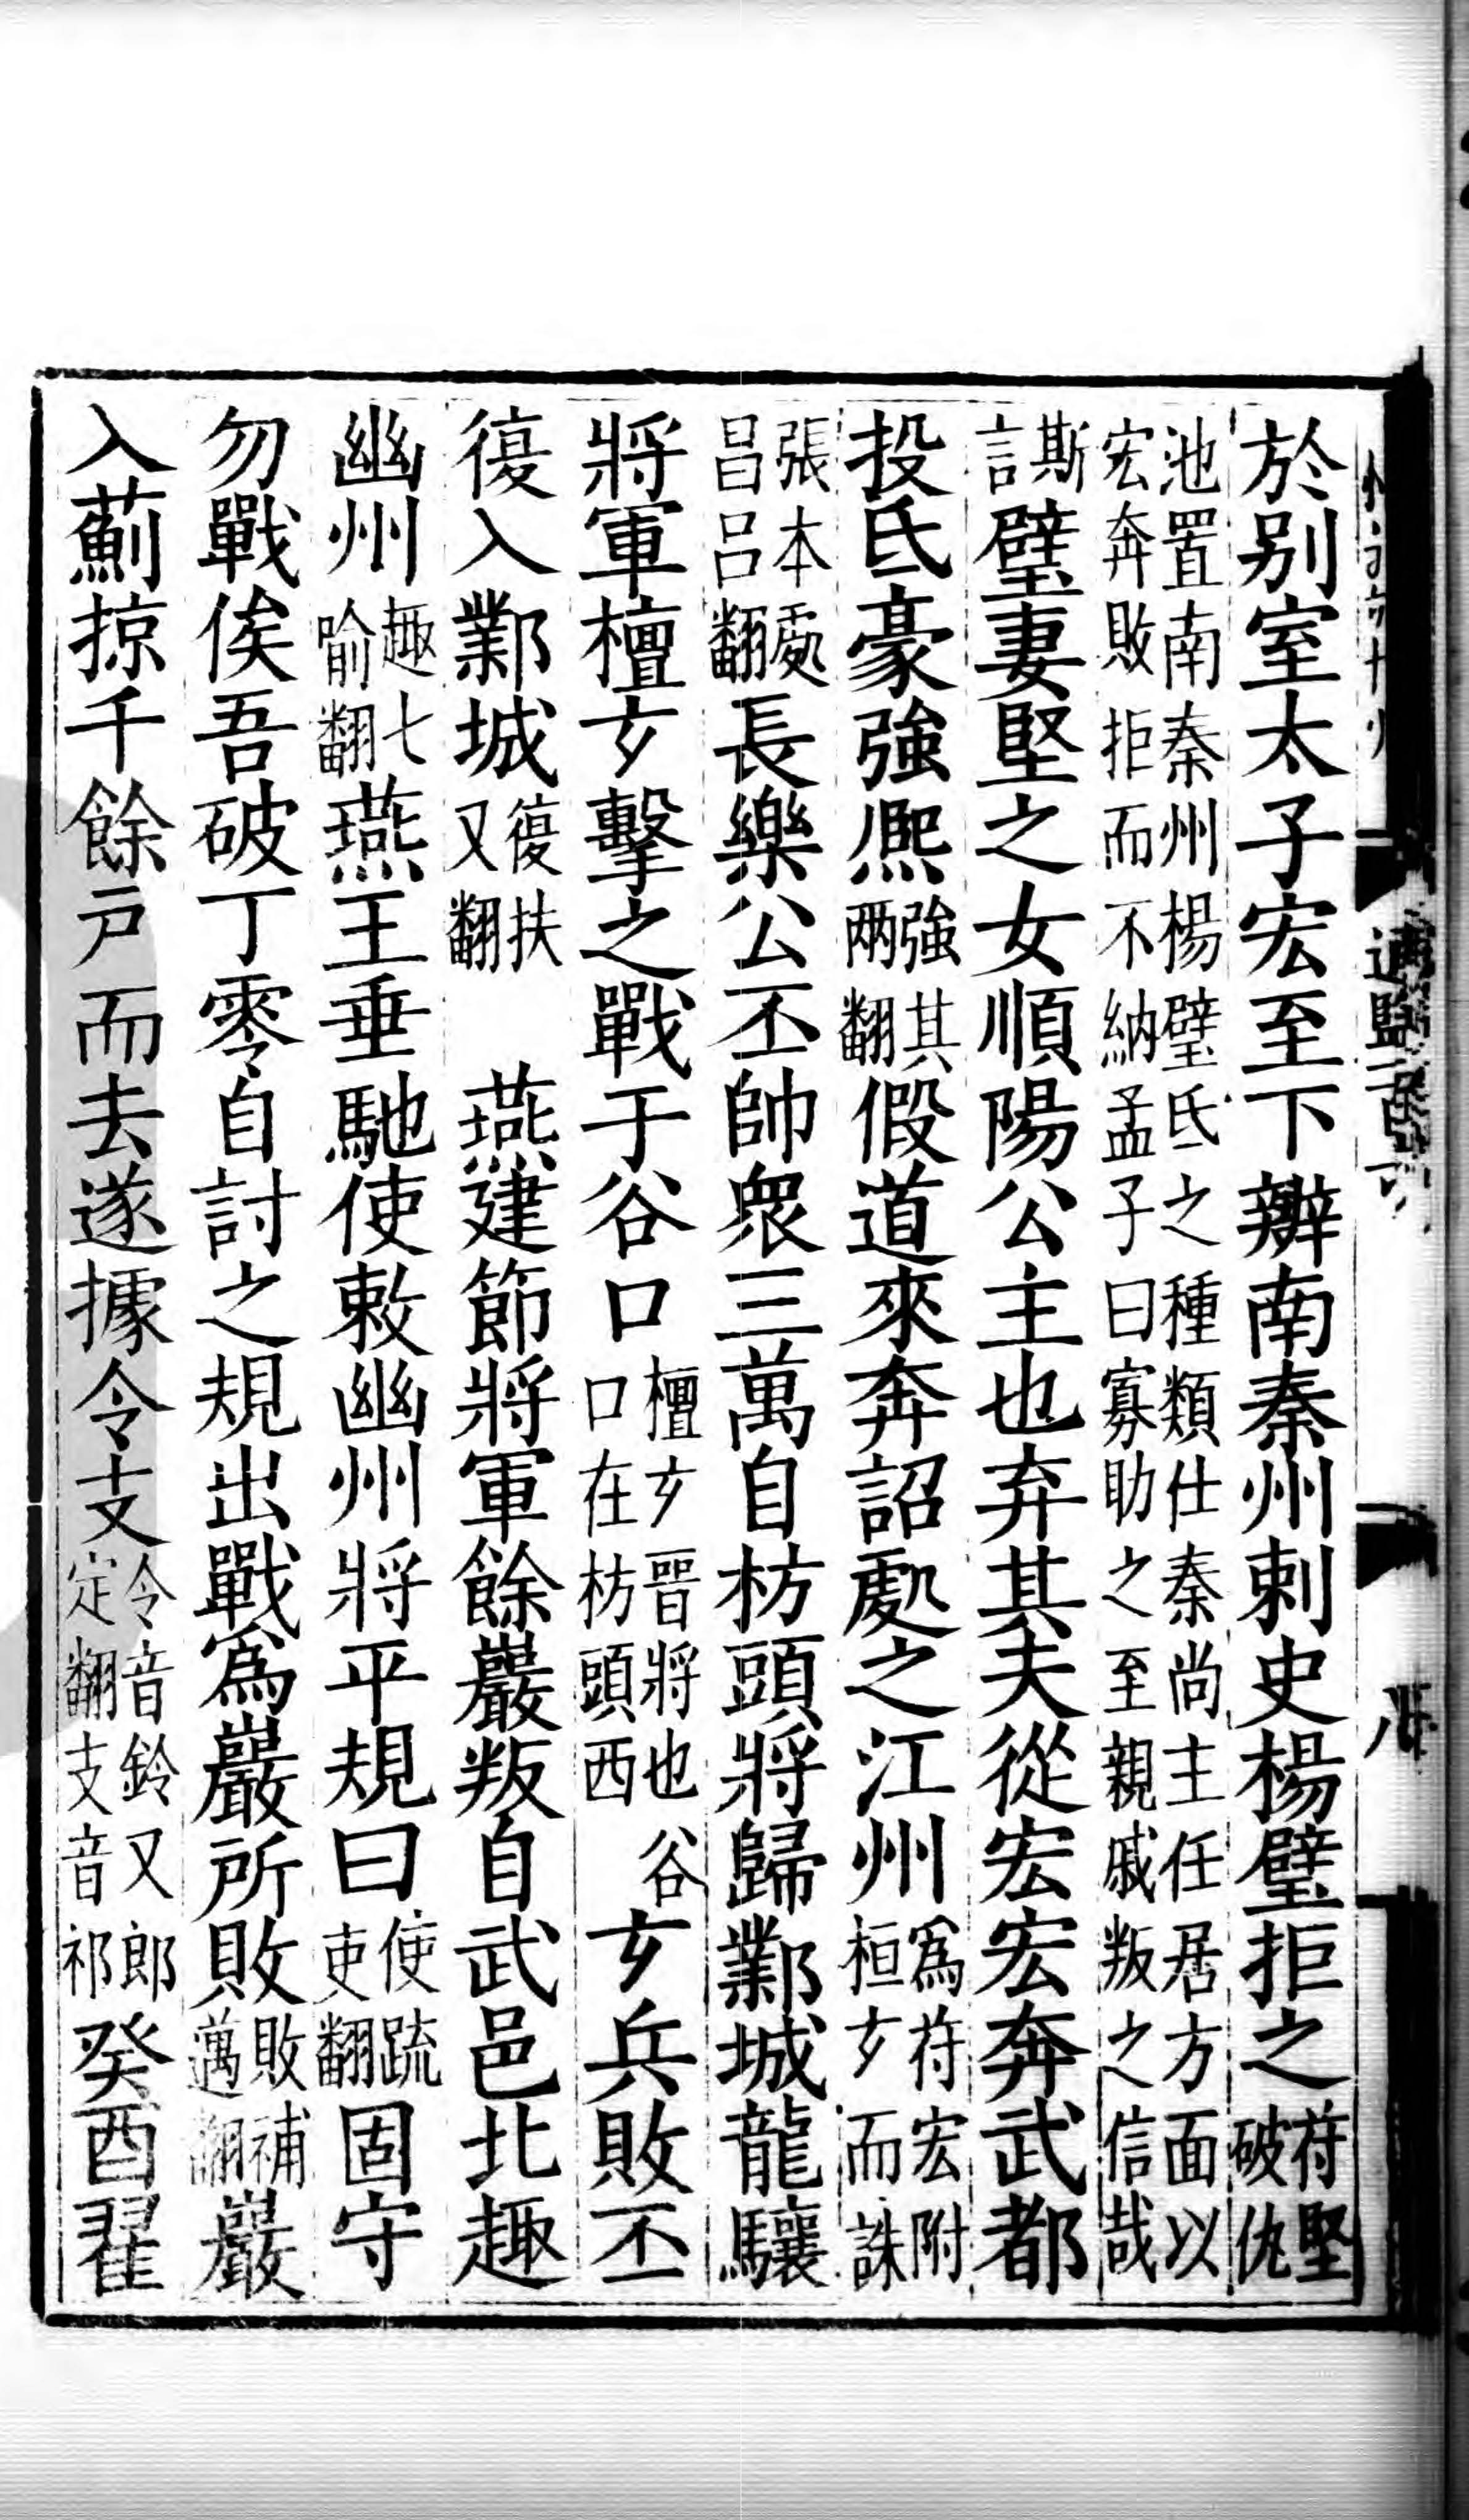 於别室太子宏至下辨南秦州刺史楊璧拒之苻堅破仇
池置南秦州楊璧氐之種類仕秦尚主任居方面以宏奔敗拒而不納孟子曰寡助之至親戚叛之信哉
斯言璧妻堅之女順陽公主也弃其夫從宏宏奔武都
投氐豪強熈強其兩翻假道來奔詔處之江州爲苻宏附桓玄而誅
張本處昌呂翻長樂公丕帥衆三萬自枋頭將歸鄴城龍驤
將軍檀玄擊之戰于谷口檀玄晉將也谷口在枋頭西玄兵敗丕
復入鄴城復扶又翻燕建節將軍餘巖叛自武邑北趣
幽州趣七喻翻燕王垂馳使敕幽州將平規曰使疏吏翻固守
勿戰俟吾破丁零自討之規出戰爲巖所敗敗補邁翻巖
入薊掠千餘戸而去遂據令支令音鈴又郎定翻支音祁癸酉翟